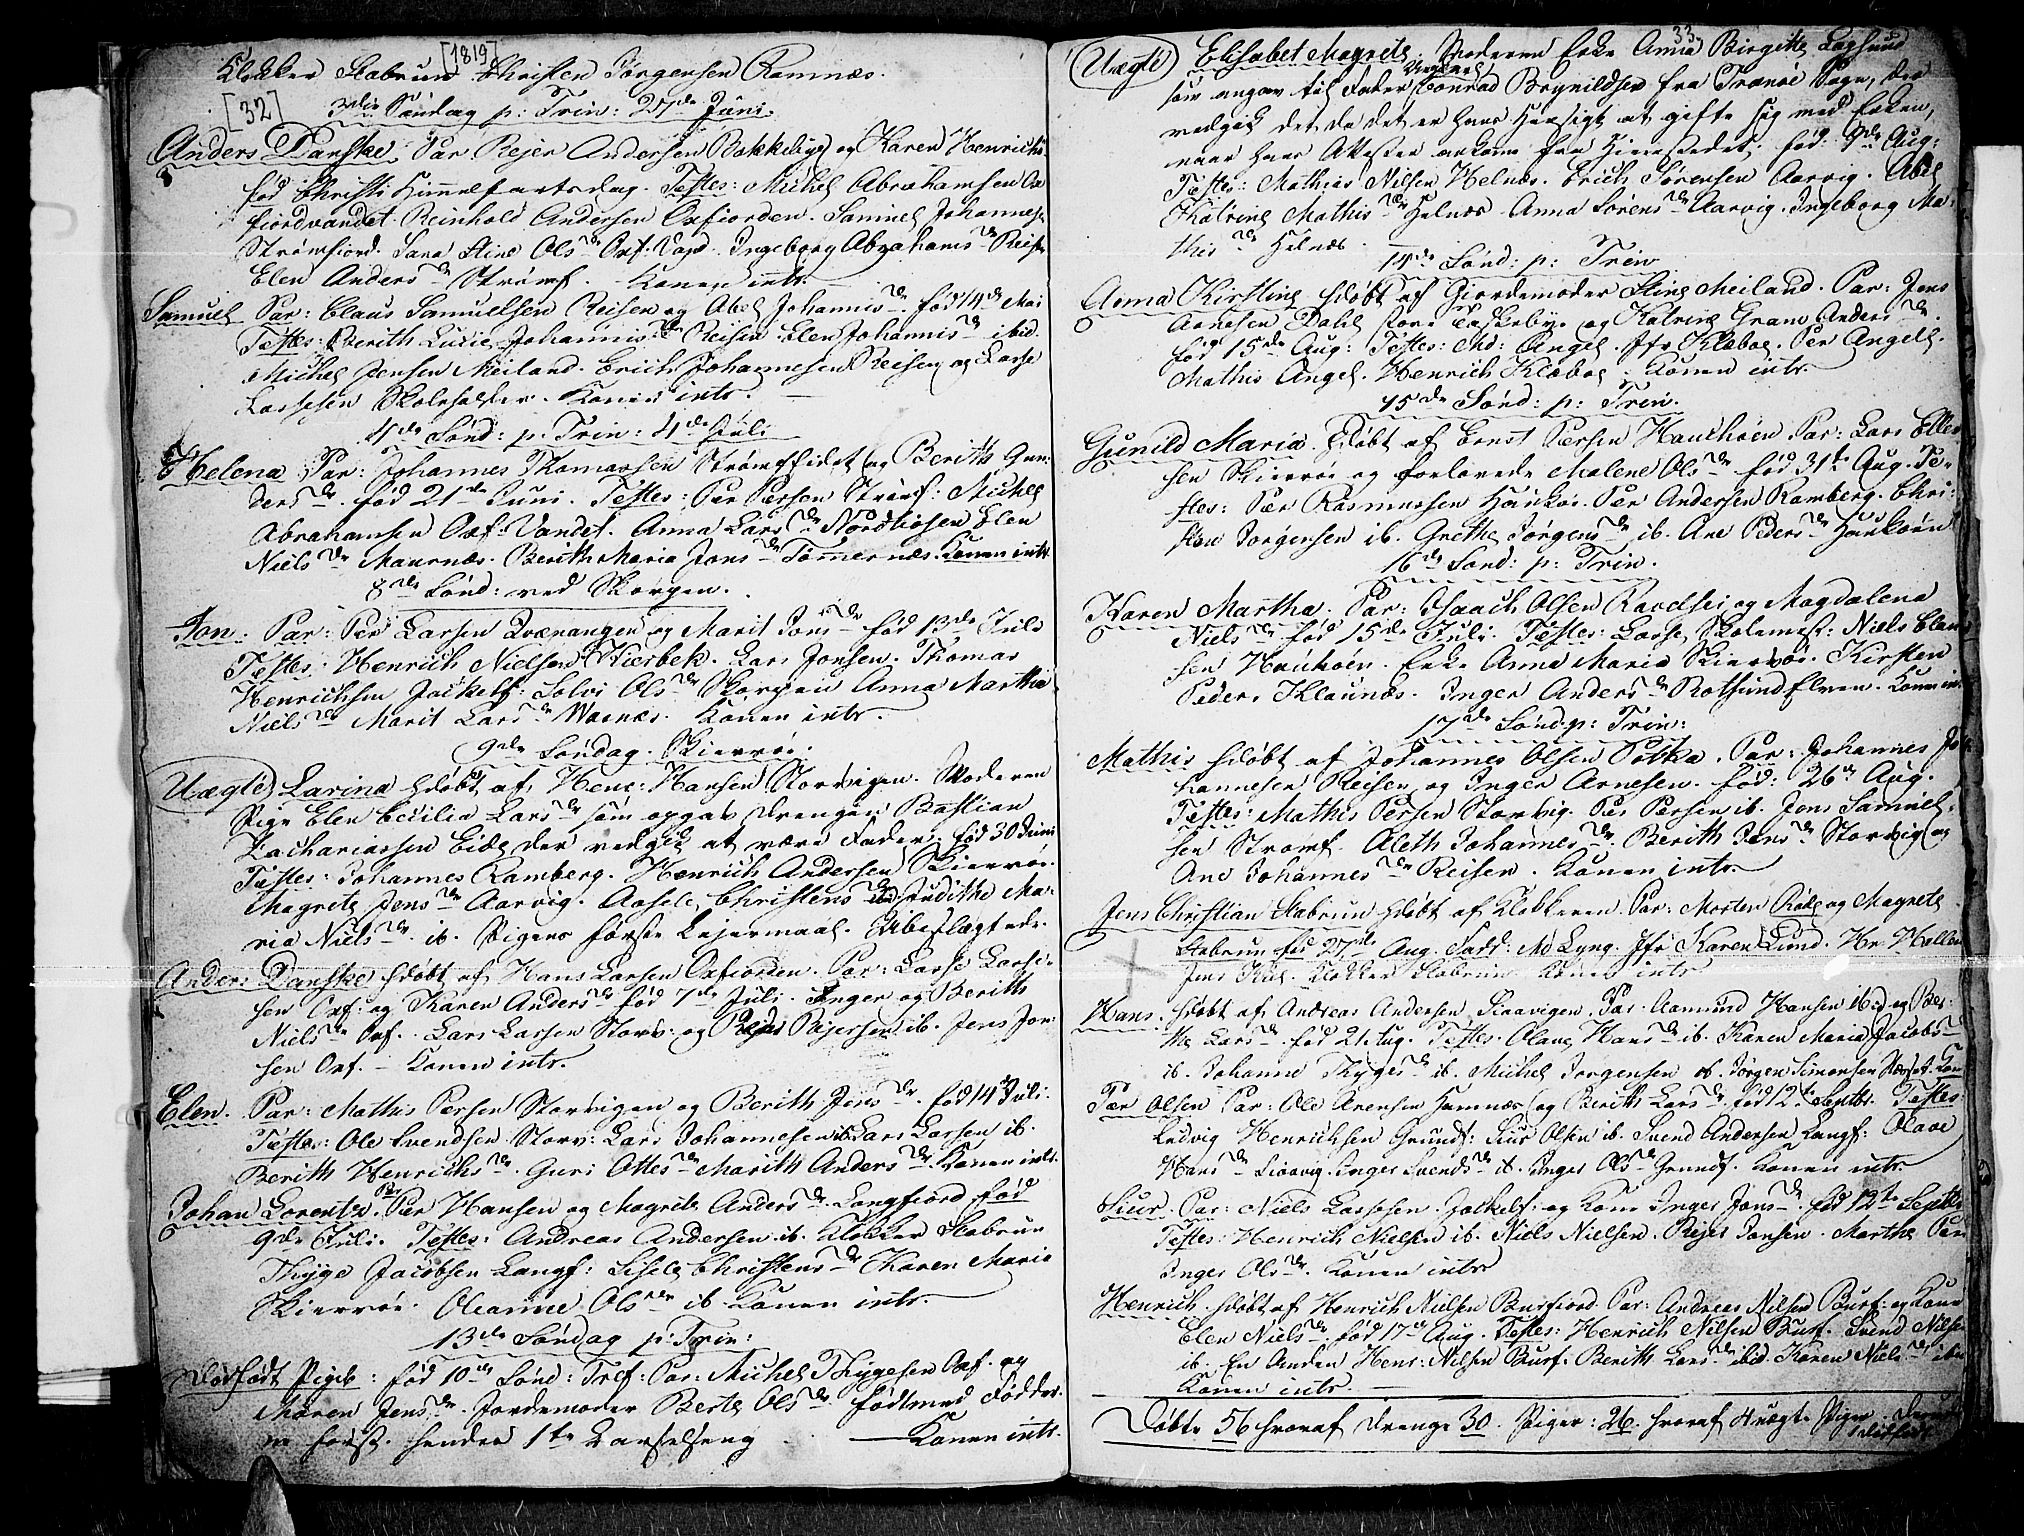 [1819]
Klokker Stabrun Christen Jørgensen Ramnæs.
[32]
3die Søndag p: Trin: 27de Juni.
Anders Danske. Par Rejer Andersen Bakkebye og Karen Henrichs
fød Christi Himmelfartsdag. Testes: Michel Abrahamsen Ox
fiordvandet. Reinhold Andersen Oxfiorden. Samuel Johannes
Strømfiord. Sara Stine Ols dr Oxf. Vand. Ingeborg Abrahams dr Reisen
Elen Anders dr Strømf. Konen intr.
Samuel Par: Claus Samuelsen Reisen og Abel Johannis dr. fød 14de Mai
Testes: Berith Lucie Johannis dr Reisen. Elen Johannis dr ibid.
Michel Jensen Meiland. Erich Johannesen Reisen og Lasse
Lassesen Skoleholder. Konen intr.
4de Sønd: p: Trin: 4de Juli
Helena Par: Johannes Thomassen Strømfiidet og Berith Gun-
ders dr. fød 21de Juni. Testes: Per Persen Strømf: Michel
Abrahamsen Oxf: Vandet. Anna Lars dr Nordkiosen Elen
Niels dr Maurnæs. Berith Maria Jons dr Tømmernæs. Konen intr
8de Sønd: ved Skorpen.
Jon: Par: Per Larsen Qvænangen og Marit Jons dr fød 13de Juli
Testes: Henrich Nielsen Kierbek. Lars Jonsen. Thomas
Henrichsen Jøckelf: Solvi Ols dr Skorpen Anna Martha
Niels dr Marit Lars dr Warnæs. Konen intr.
9de Søndag. Skiervøe:
Uægte Larina hdøbt af Henr: Hansen Storvigen. Moderen
Pige Elen Cecilia Lars dr som opgav Drengen Bastian
Zachariassen Eide der vedgik at være Fader. fød 30 Juni
Testes: Johannes Ramberg. Henrich Andersen Skiervøe.
Magrete Jens dr Aarvig. Aasele Christens dr Judithe Ma-
ria Niels dr ib. Pigens første Lejermaal. Ubeslægtede.
Anders Danske hdøbt af Hans Larsen Oxfiorden. Par: Lasse Lasse-
sen Oxf. og Karen Anders dr fød 7de Juli. Inger og Berith
Niels dr Oxf. Lars Larsen Storv: og Rejer Rejersen ib. Jens Jon-
sen Oxf. Konen intr.
Elen. Par: Mathis Persen Storvigen og Berith Jens dr. fød 14de Juli.
Testes: Ole Svendsen Storv: Lars Johannesen ib Lars Larsen ib.
Berith Henrichs dr. Guri Ottes dr Marith Anders dr Konen intr.
Johan Lorentz. Par Per Hansen og Magrete Anders dr. Langfiord fød
9de Juli. Testes: Andreas Andersen ib. Klokker Stabrun
Thyge Jacobsen Langf: Lisele Christens dr Karen Marie
Skiervøe. Oleanne Ols dr ib Konen intr.
13de Søndag p: Trin:
Dødfødt Pige: fød 10de Sønd: Tref: Par: Michel Thygesen Oxf. og
Maren Jens dr. Jordemoder Berte Ols dr. født med Fødder-
ne først. hendes 1te Barselseng Konen intr.
33
Uægte Elisabet Magrete. Moderen Enke Anna Birgitte Lagsund
som angav til Fader Ungkarl Conrad Brynildsen fra Tranøe Sogn, der
vedgik det, da det er hans Hensigt at gifte sig med Enken,
naar hans Attester ankom fra Hiemstedet; fød: 9de Aug:
Testes: Mathias Nilsen Helnæs. Erich Sørensen Aarvig. Abel
Katrine Mathis dr Helnæs. Anna Sørens dr Aarvig. Ingeborg Ma-
this dr Helnæs.
14de Sønd: p: Trin
Anna Kirstine hdøbt af Giordemoder Stine Meiland. Par: Jens
Arnesen Dahl store Taskebye og Katrine Gram Anders dr.
fød 15de Aug: Testes: Md: Angel. Jfr Klæboe. Per Angell.
Mathis Angel. Henrich Klæboe. Konen intr.
15de Sønd: p: Trin.
Gunild Maria. hdøbt af Ernst Persen Hauchøen Par: Lars Eller
sen Skiervøe og forlovede Malene Ols dr fød 31te Aug. Te-
stes: Per Rasmussen Haukøe. Per Andersen Ramberg. Chri-
sten Jørgensen ib. Grethe Jørgens dr ib. Ane Peders dr Haukøen
16de Sønd: p: Trin.
Karen Martha. Par: Isaach Olsen Ravelsei og Magdalena
Niels dr fød 15de Juli. Testes: Lasse Skolemest: Niels Clau-
sen Hauhøen. Enke Anna Maria Skiervøe. Kirsten
Peders Klaunæs. Inger Anders dr Rotsund Elven. Konen intr
17de Sønd: p: Trin:
Mathis hdøbt af Johannes Olsen Potka. Par: Johannes Jo-
hannesen Reisen og Inger Arnesen. fød: 26de Aug.
Testes: Mathis Persen Storvig. Per Persen ib. Jens Samuel-
sen Strømf. Aleth Johannes dr. Berith Jens dr. Storvig og
Ane Johannes dr Reisen. Konen intr.
Jens Christian Stabrun hdøbt af Klokkeren. Par: Morten Røle og Magrete
Stabrun. fød 27de Aug. Fadd: Md Lyng. Jfr Karen Lund. Hr Holler
Jens Kiil. Klokker Stabrun. Konen intr
Hans. hdøbt af Andreas Andersen Sinavigen. Par. Aamund Hansen ibid og
the Lars dr. fød 21. Aug. Testes. Olave Hans dr ib. Karen Maria Jacobs dr
ib. Johanne Thyges dr ib. Michel Jørgensen ib. Jørgen Simonsen Kon
Pær Olsen Par: Ole Arensen Hamnæs og Berith Lars dr. fød 12te Septbr. Testes:
Ludvig Henrichsen Grundf: Siur Olsen ib. Svend Andersen Langf: Olave
Hans dr Sinavig. Inger Svends dr ib. Inger Ols dr Grundf. Konen intr.
Siur. Par: Niels Lassesen. Jøckelf: og Kone Inger Jons dr. fød 12te Septbr
Testes: Henrich Nielsen ib. Niels Nielsen. Rejer Jansen. Marthe Per
Inger Ols dr. Konen intr
Henrich. hdøbt af Henrich Nielsen Burfiord. Par: Andreas Nilsen Burf: og Kone
Elen Niels dr. fød 17de Aug. Testes: Henrich Nilsen Burf. Svend Nilsen
ib. En Anden Henr: Nilsen Burf. Berith Lars dr. ibid. Karen Niels dr ibm
Konen intr.
Døbte 56 hvoraf Drenge 30. Piger: 26. hvoraf 4 uægte Piger.